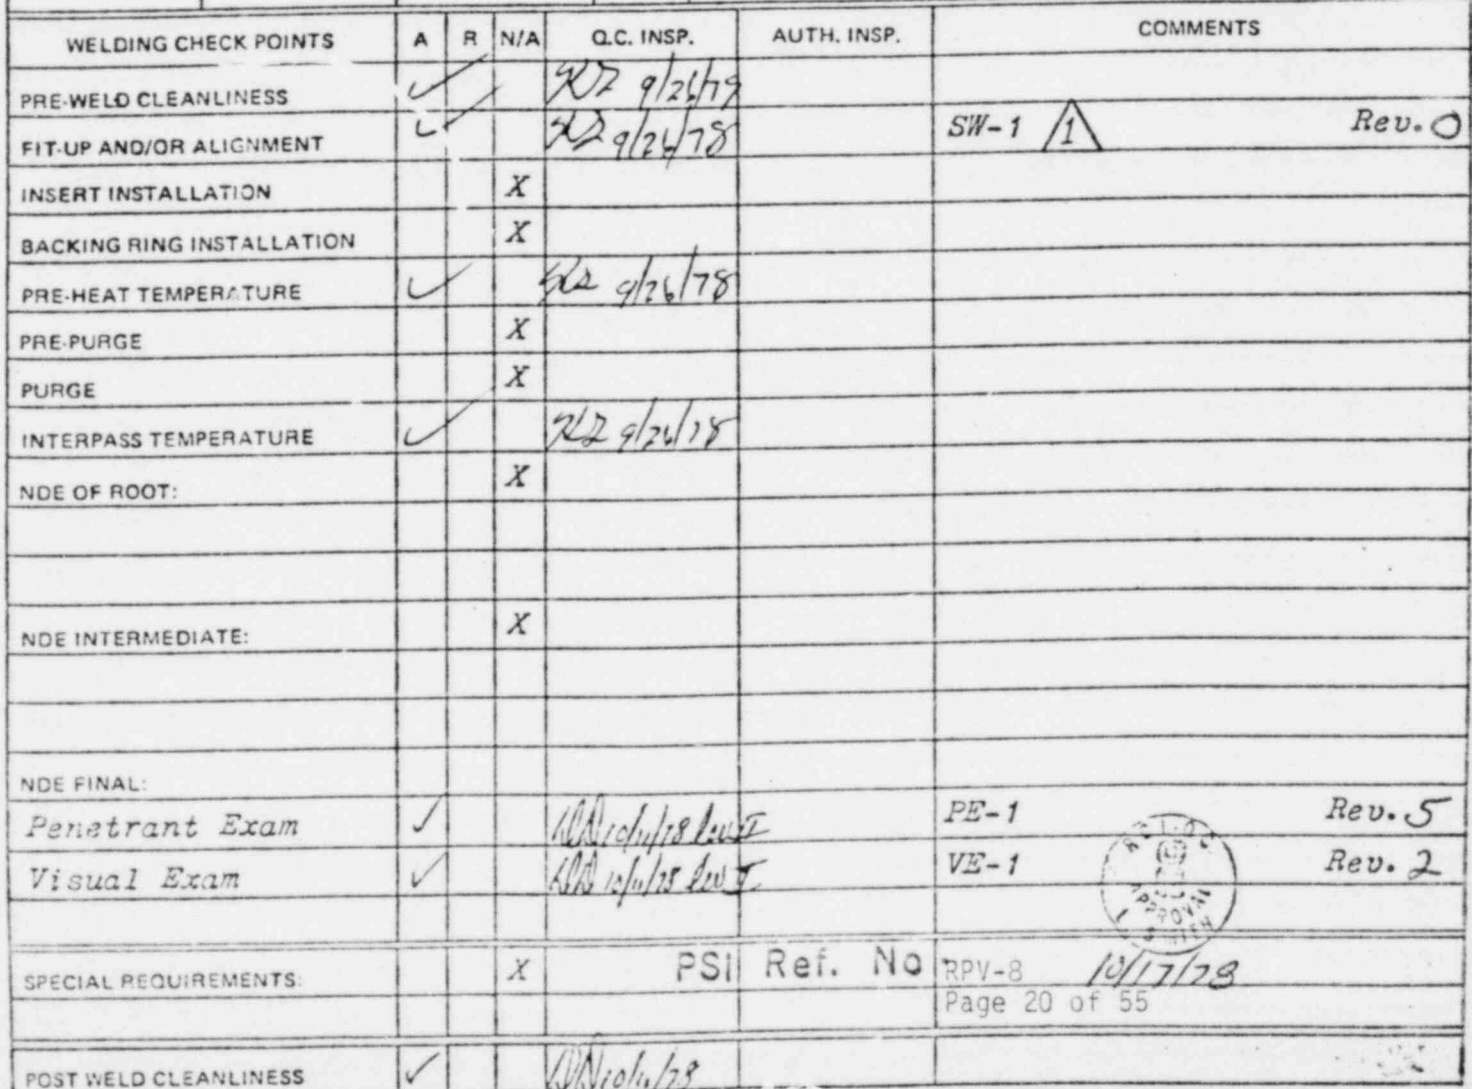 WELDING CHECK POINTS A R N/A Q.C. INSP. AUTH. INSP. COMMENTS
PRE-WELD CLEANLINESS ✓ 9/26/78
FIT-UP AND/OR ALIGNMENT ✓ 9/26/78 SW-1 1 Rev. 0
INSERT INSTALLATION X
BACKING RING INSTALLATION X
PRE-HEAT TEMPERATURE ✓ 9/26/78
PRE-PURGE X
PURGE X
INTERPASS TEMPERATURE ✓ 9/26/78
NDE OF ROOT: X
NDE INTERMEDIATE: X
NDE FINAL:
Penetrant Exam ✓ 10/11/78 Lev II PE-1 Rev. 5
Visual Exam ✓ 10/11/78 Lev II VE-1 Rev. 2
APPROVAL
SPECIAL REQUIREMENTS: X PSI Ref. No RPV-8 10/17/78
Page 20 of 55
POST WELD CLEANLINESS ✓ 10/11/78